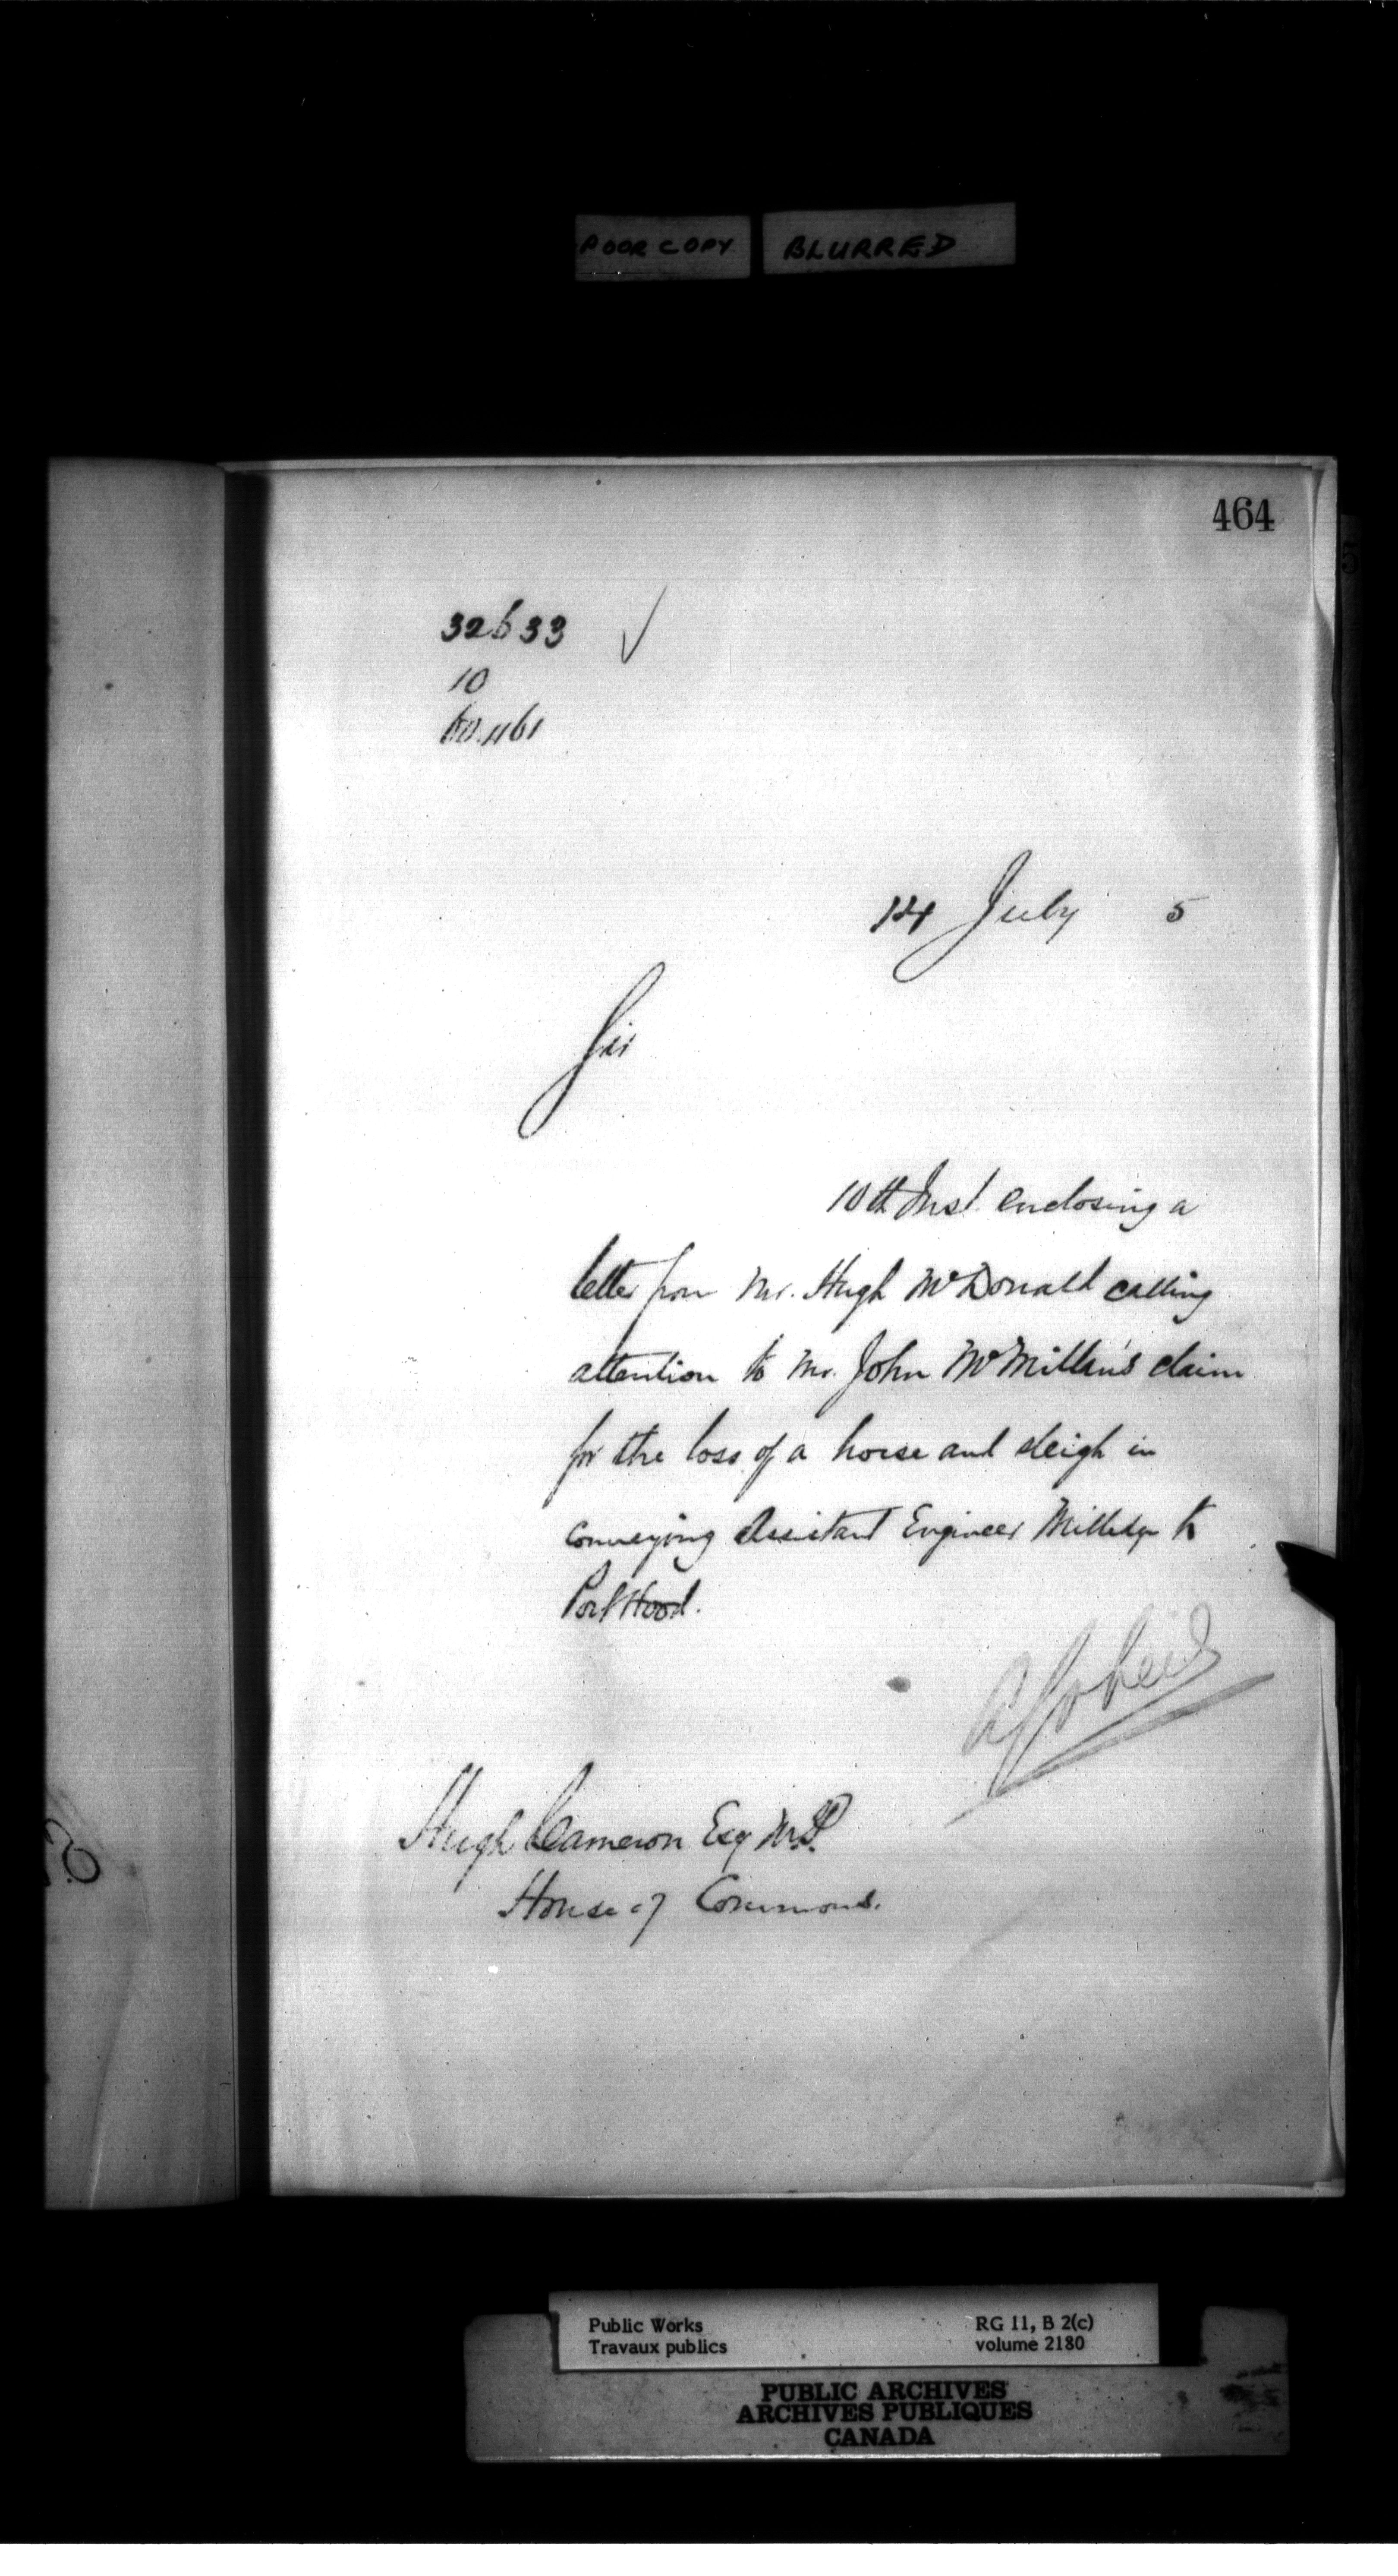 POOR COPY BLURRED
464
32633
10
14 July 5
Sir
10th Inst. enclosing a
letter from Mr. Hugh McDonald calling
attention to Mr. John McMillan's claim
for the loss of a horse and sleigh in
conveying Assistant Engineer Milledge to
Port Hood.
Hugh Cameron Esq M.P.
House of Commons.
Public Works RG 11, B 2(c)
Travaux publics volume 2180
PUBLIC ARCHIVES
ARCHIVES PUBLIQUES
CANADA